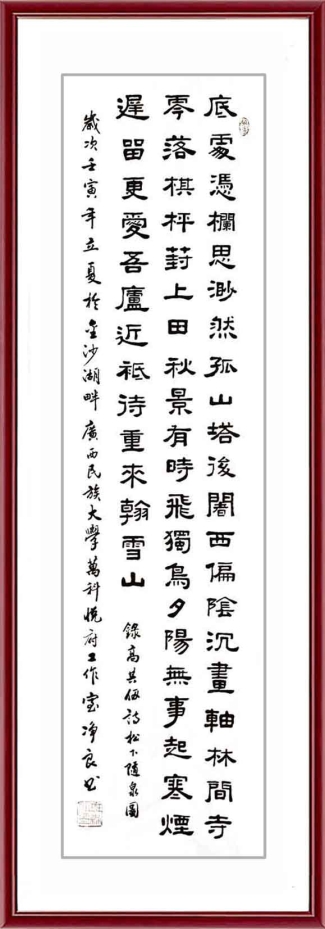 底處憑欄思渺然孤山塔後閣西偏陰沉畫軸林間寺
零落棋枰葑上田秋景有時飛獨鳥夕陽無事起寒煙
遲留更愛吾廬近祇待重來翰雪山
錄高其佩詩松下隨泉圖
歲次壬寅年立夏於金沙湖畔廣西民族大學萬科悅府工作室净良书